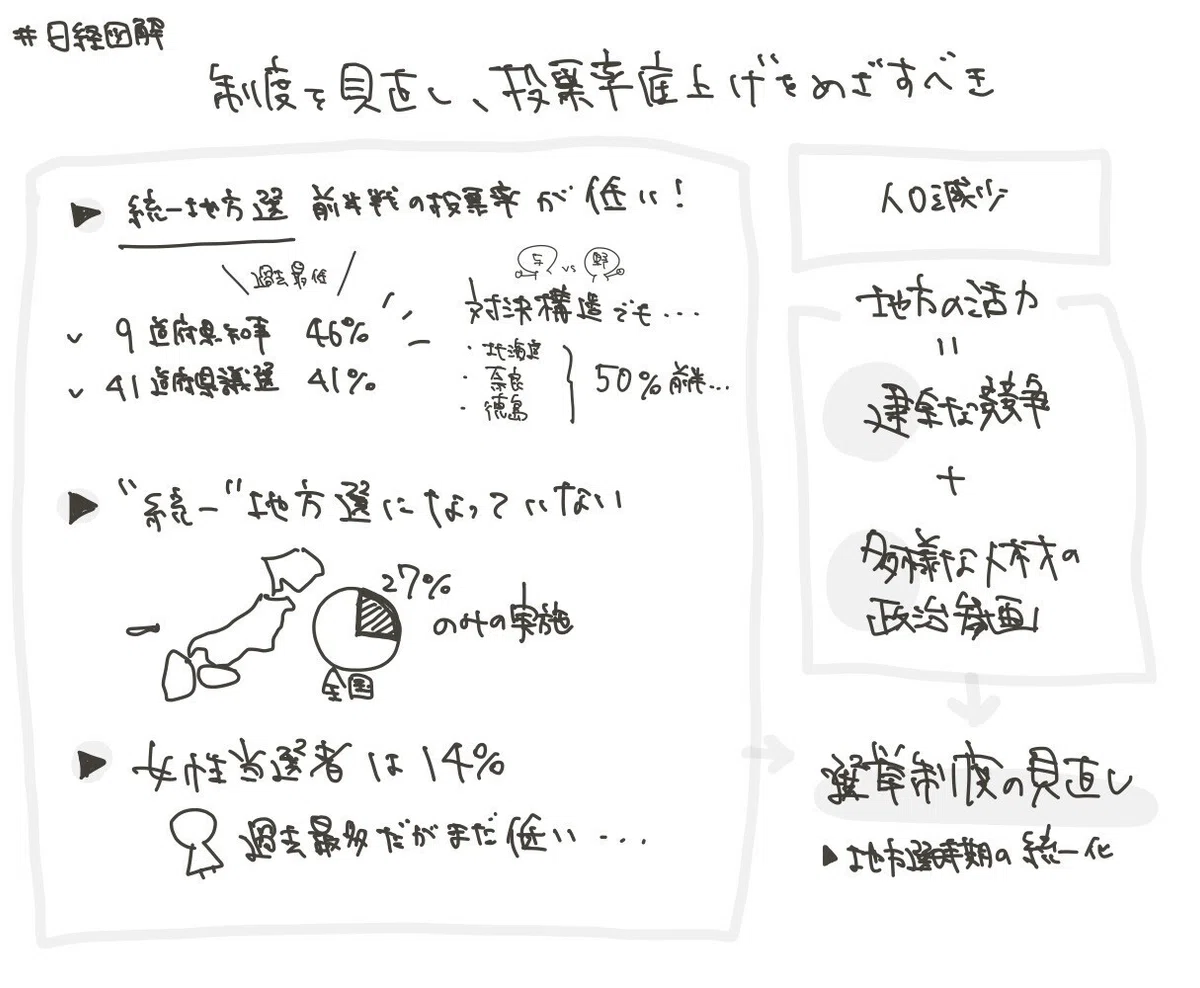 #日経図解
制度を見直し、投票率底上げをめざすべき
▶ 統一地方選 前半戦の投票率が低い!
過去最低
✓ 9道府県知事 46%
✓ 41道府県議選 41%
与 vs 野
対決構造でも...
・北海道
・奈良
・徳島
50%前半...
▶ "統一"地方選になっていない
27%
のみの実施
全国
▶ 女性当選者は14%
過去最多だがまだ低い...
人口減少
地方の活力
=
健全な競争
+
多様な人材の
政治参画
選挙制度の見直し
▶ 地方選時期の統一化